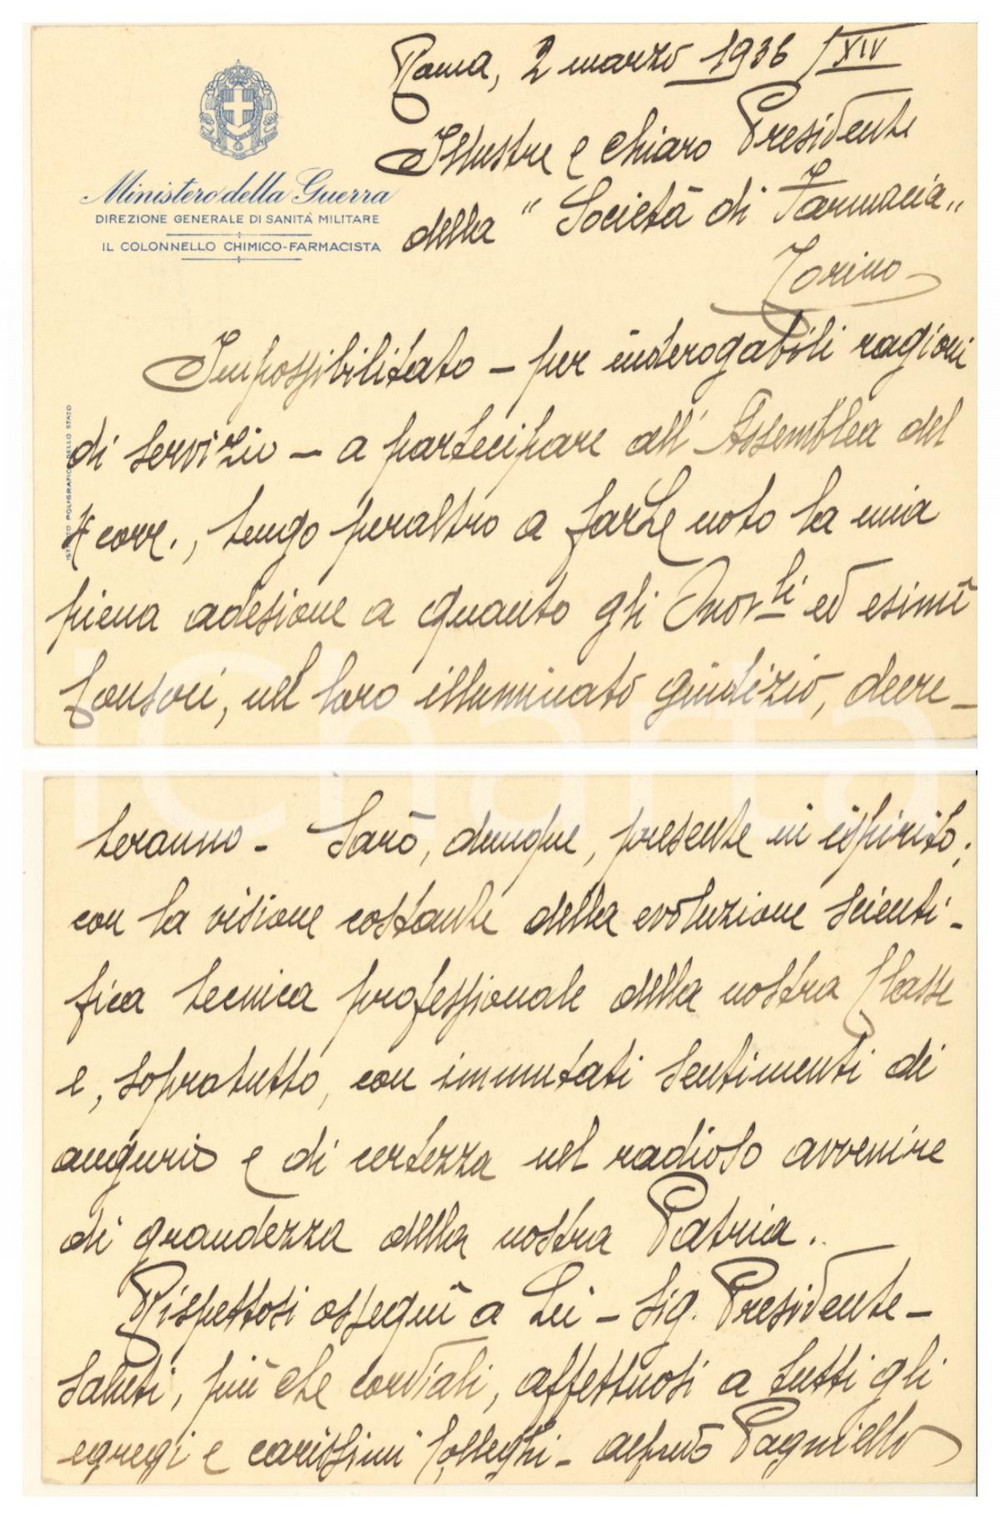 Roma, 2 marzo 1936 / XIV
Ministero della Guerra
DIREZIONE GENERALE DI SANITÀ MILITARE
IL COLONNELLO CHIMICO-FARMACISTA
Illustre e Chiaro Presidente
della "Società di Farmacia"
Torino
ISTITUTO POLIGRAFICO DELLO STATO
Impossibilitato - per inderogabili ragioni
di servizio - a partecipare all'Assemblea del
4 corr., tengo peraltro a farLe noto la mia
piena adesione a quanto gli Onor.li ed esimî
Consoci, nel loro illuminato giudizio, decre-
teranno - Sarò, dunque, presente in ispirito;
con la visione costante della evoluzione scienti-
fica tecnica professionale della nostra Classe
e, sopratutto, con immutati sentimenti di
augurio e di certezza nel radioso avvenire
di grandezza della nostra Patria..
Rispettosi ossequî a Lei - Sig. Presidente -
saluti, più che cordiali, affettuosi a tutti gli
egregi e carissimi Colleghi - Alfredo Pagniello
iCharta